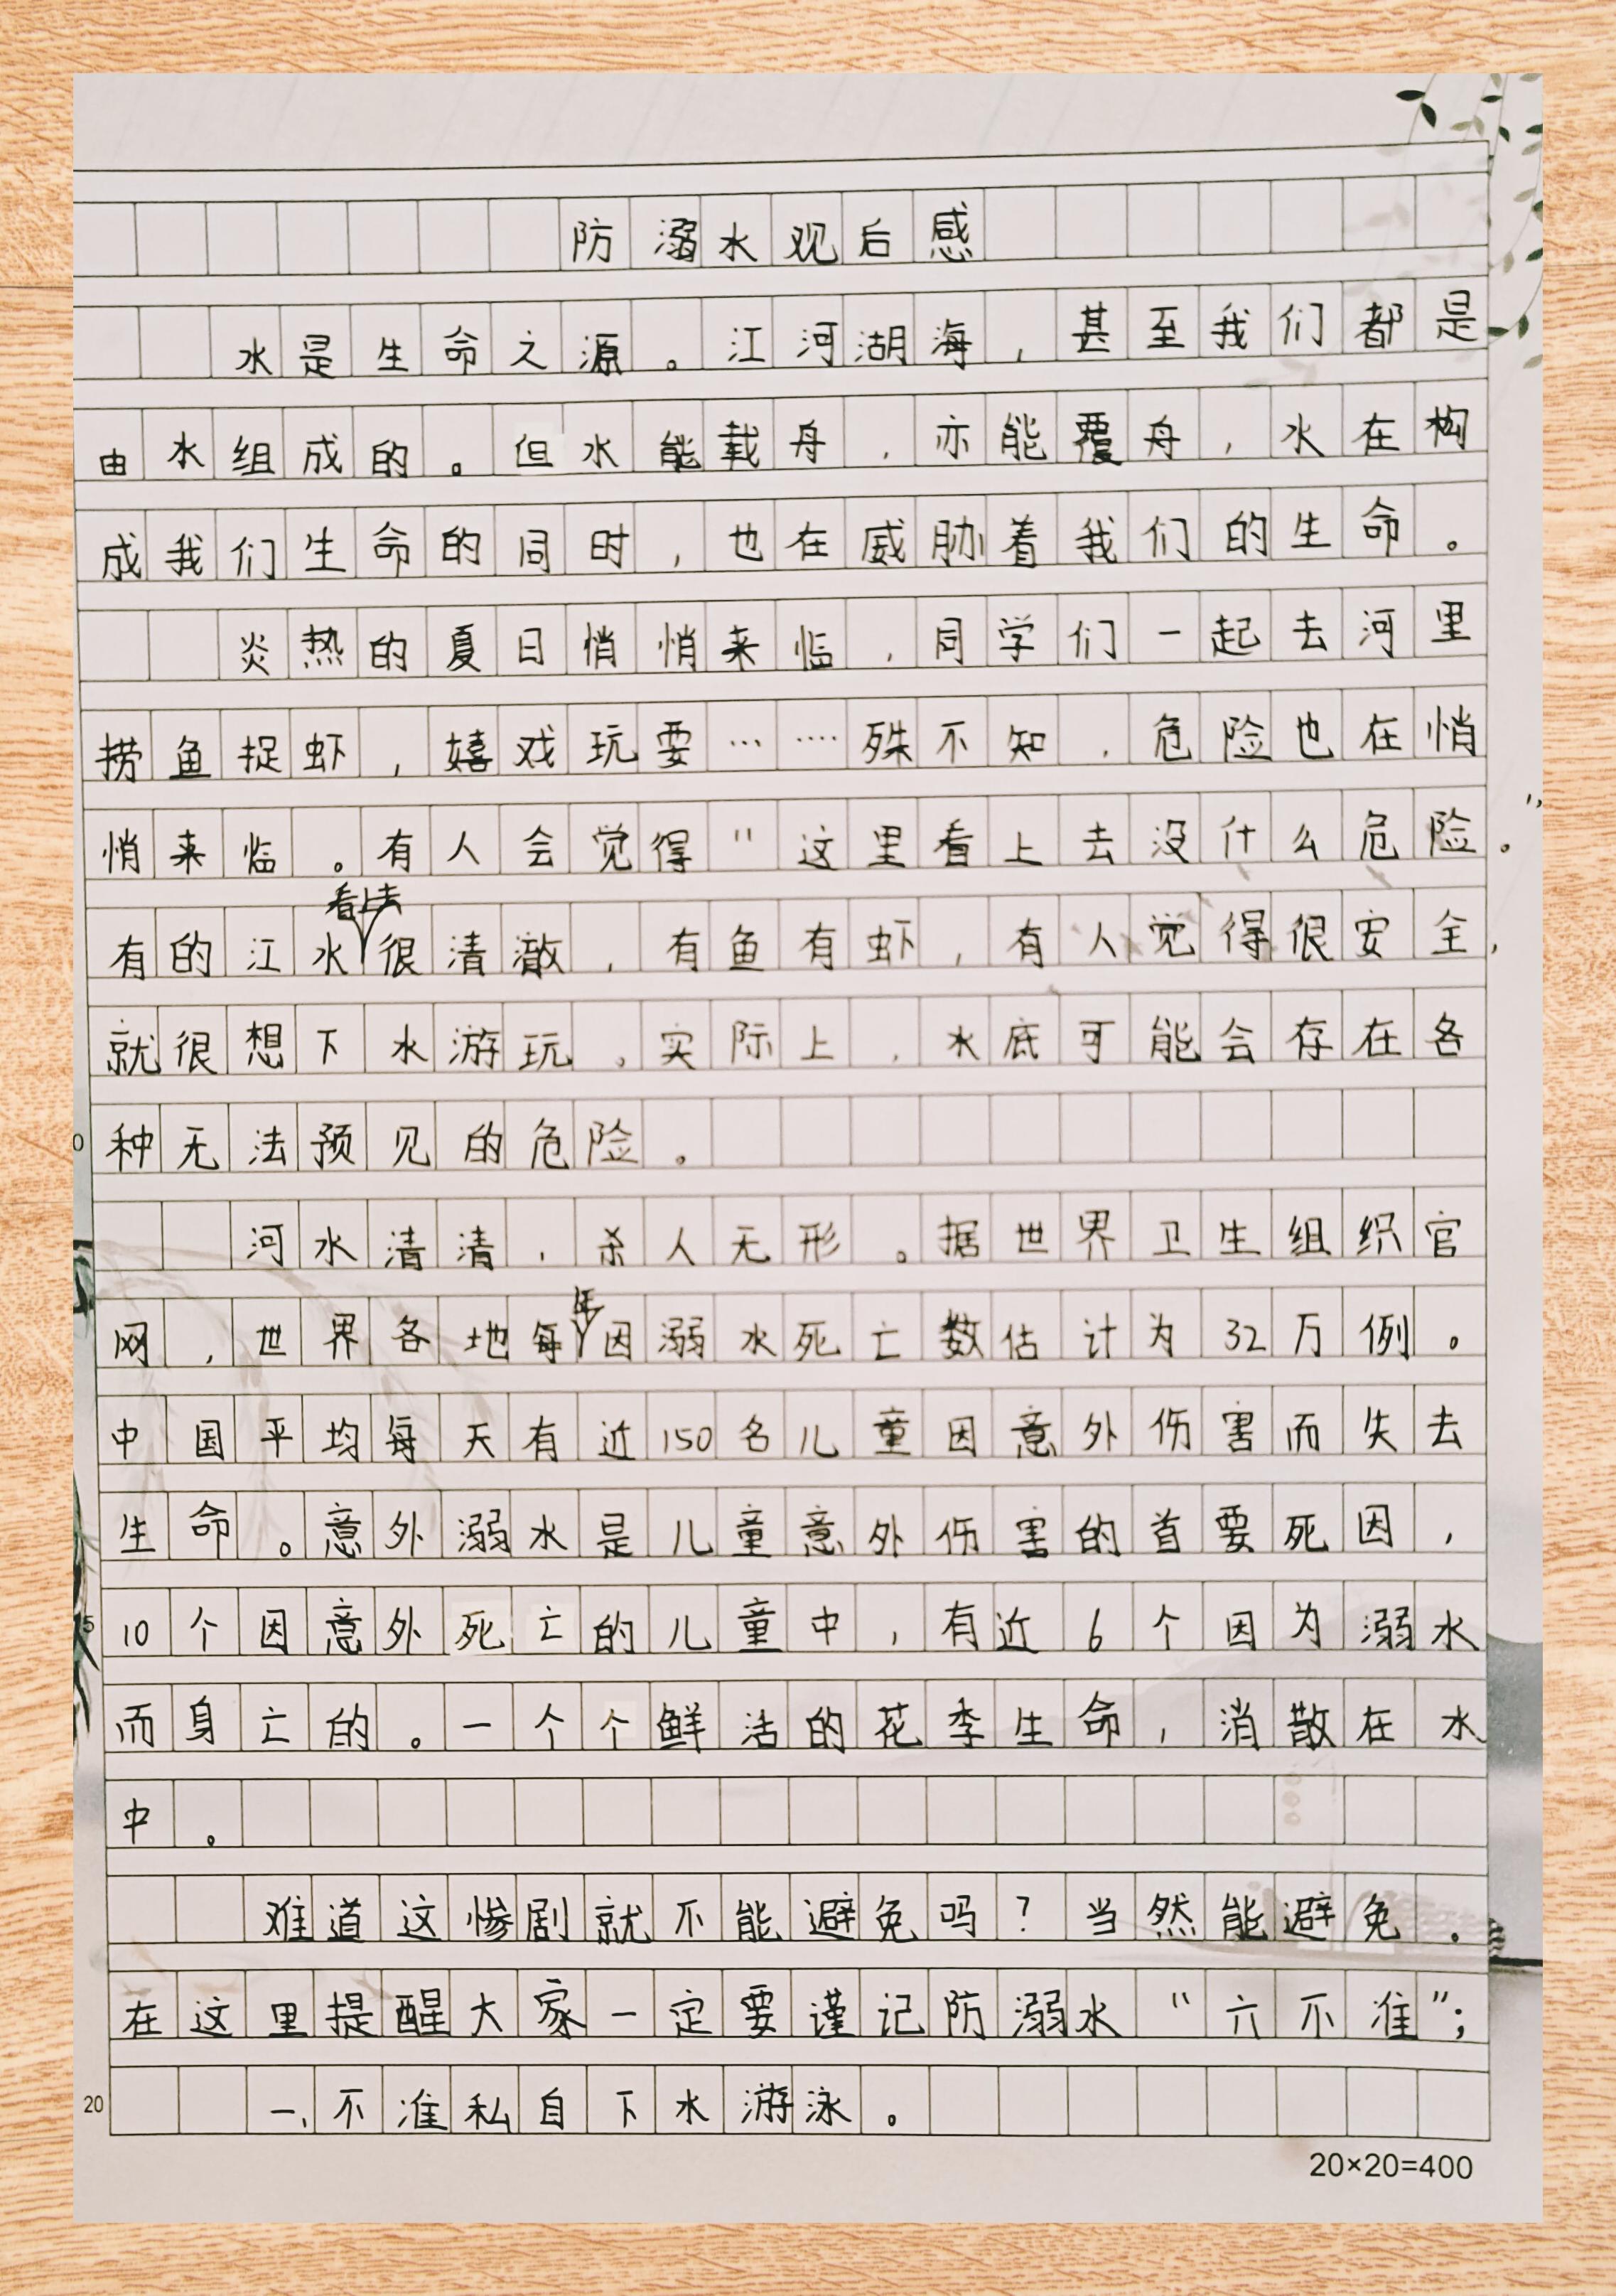 防溺水观后感
水是生命之源。江河湖海，甚至我们都是
由水组成的。但水能载舟，亦能覆舟，水在构
成我们生命的同时，也在威胁着我们的生命。
炎热的夏日悄悄来临，同学们一起去河里
捞鱼捉虾，嬉戏玩耍……殊不知，危险也在悄
悄来临。有人会觉得"这里看上去没什么危险。"
有的江水看上去很清澈，有鱼有虾，有人觉得很安全，
就很想下水游玩。实际上，水底可能会存在各
种无法预见的危险。
河水清清，杀人无形。据世界卫生组织官
网，世界各地每年因溺水死亡数估计为32万例。
中国平均每天有近150名儿童因意外伤害而失去
生命。意外溺水是儿童意外伤害的首要死因，
10个因意外死亡的儿童中，有近6个因为溺水
而身亡的。一个个鲜活的花季生命，消散在水
中。
难道这惨剧就不能避免吗？当然能避免。
在这里提醒大家一定要谨记防溺水"六不准"；
一、不准私自下水游泳。
20
20×20=400